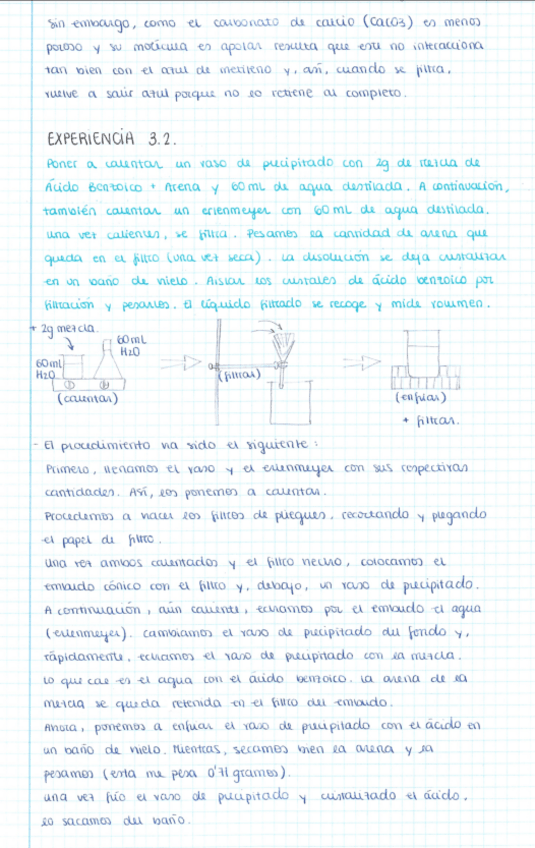 sin embargo, como el carbonato de calcio (CaCO3) es menos
poroso y su molécula es apolar resulta que este no interacciona
tan bien con el azul de metileno y, así, cuando se filtra,
vuelve a salir azul porque no lo retiene al completo.
EXPERIENCIA 3.2.
Poner a calentar un vaso de precipitado con 2g de mezcla de
Ácido Benzoico + Arena y 60mL de agua destilada. A continuación,
también calentar un erlenmeyer con 60mL de agua destilada.
una vez calientes, se filtra. Pesamos la cantidad de arena que
queda en el filtro (una vez seca). La disolución se deja cristalizar
en un baño de hielo. Aislar los cristales de ácido benzoico por
filtración y pesarlos. El líquido filtrado se recoge y mide volumen.
+ 2g mezcla
60mL
H2O
60mL
H2O
(calentar)
(filtrar)
(enfriar)
+ filtrar.
- El procedimiento ha sido el siguiente:
Primero, llenamos el vaso y el erlenmeyer con sus respectivas
cantidades. Así, los ponemos a calentar.
Procedemos a hacer los filtros de pliegues, recortando y plegando
el papel de filtro.
Una vez ambos calentados y el filtro hecho, colocamos el
embudo cónico con el filtro y, debajo, un vaso de precipitado.
A continuación, aún caliente, echamos por el embudo el agua
(erlenmeyer). Cambiamos el vaso de precipitado del fondo y,
rápidamente, echamos el vaso de precipitado con la mezcla.
Lo que cae es el agua con el ácido benzoico. La arena de la
mezcla se queda retenida en el filtro del embudo.
Ahora, ponemos a enfriar el vaso de precipitado con el ácido en
un baño de hielo. Mientras, secamos bien la arena y la
pesamos (esta me pesa 0'71 gramos).
una vez frío el vaso de precipitado y cristalizado el ácido,
lo sacamos del baño.